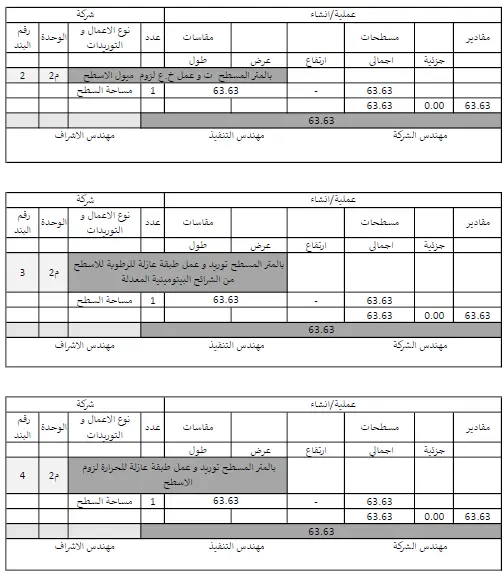 شركة عملية/انشاء
رقم البند الوحدة نوع الاعمال و التوريدات عدد مقاسات مسطحات مقادير
طول عرض ارتفاع اجمالى جزئية
2 م2 بالمتر المسطح ت و عمل خ ع لزوم ميول الاسطح
مساحة السطح 1 63.63 - 63.63
63.63 0.00 63.63
63.63
مهندس الاشراف مهندس التنفيذ مهندس الشركة
شركة عملية/انشاء
رقم البند الوحدة نوع الاعمال و التوريدات عدد مقاسات مسطحات مقادير
طول عرض ارتفاع اجمالى جزئية
3 م2 بالمتر المسطح توريد و عمل طبقة عازلة للرطوبة للاسطح
من الشرائح البيتومينية المعدلة
مساحة السطح 1 63.63 - 63.63
63.63 0.00 63.63
63.63
مهندس الاشراف مهندس التنفيذ مهندس الشركة
شركة عملية/انشاء
رقم البند الوحدة نوع الاعمال و التوريدات عدد مقاسات مسطحات مقادير
طول عرض ارتفاع اجمالى جزئية
4 م2 بالمتر المسطح توريد و عمل طبقة عازلة للحرارة لزوم
الاسطح
مساحة السطح 1 63.63 - 63.63
63.63 0.00 63.63
63.63
مهندس الاشراف مهندس التنفيذ مهندس الشركة